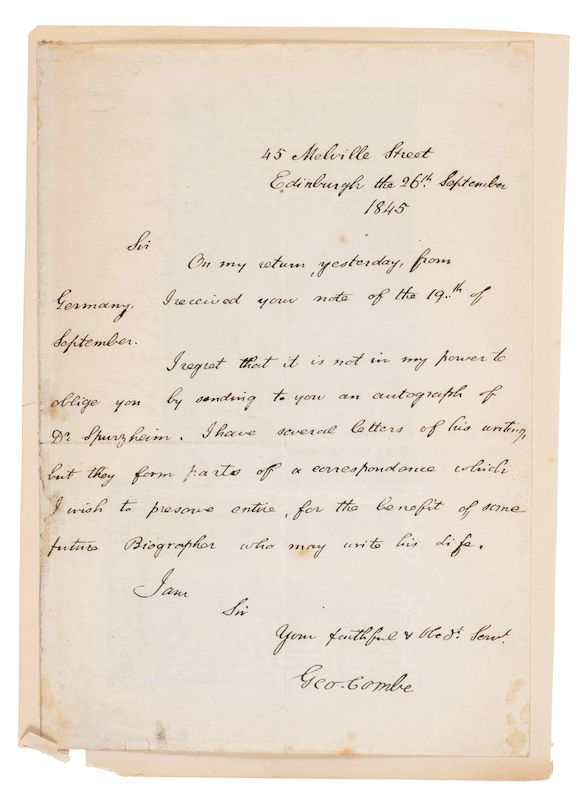 45 Melville Street
Edinburgh the 26th. September
1845
Sir
On my return, yesterday, from
Germany, I received your note of the 19th. of
September.
I regret that it is not in my power to
oblige you by sending to you an autograph of
Dr. Spurzheim. I have several letters of his writing,
but they form parts off a correspondence which
I wish to preserve entire, for the benefit of some
future Biographer who may write his life.
I am
Sir
Your faithful & Obedt. Servt.
Geo. Combe